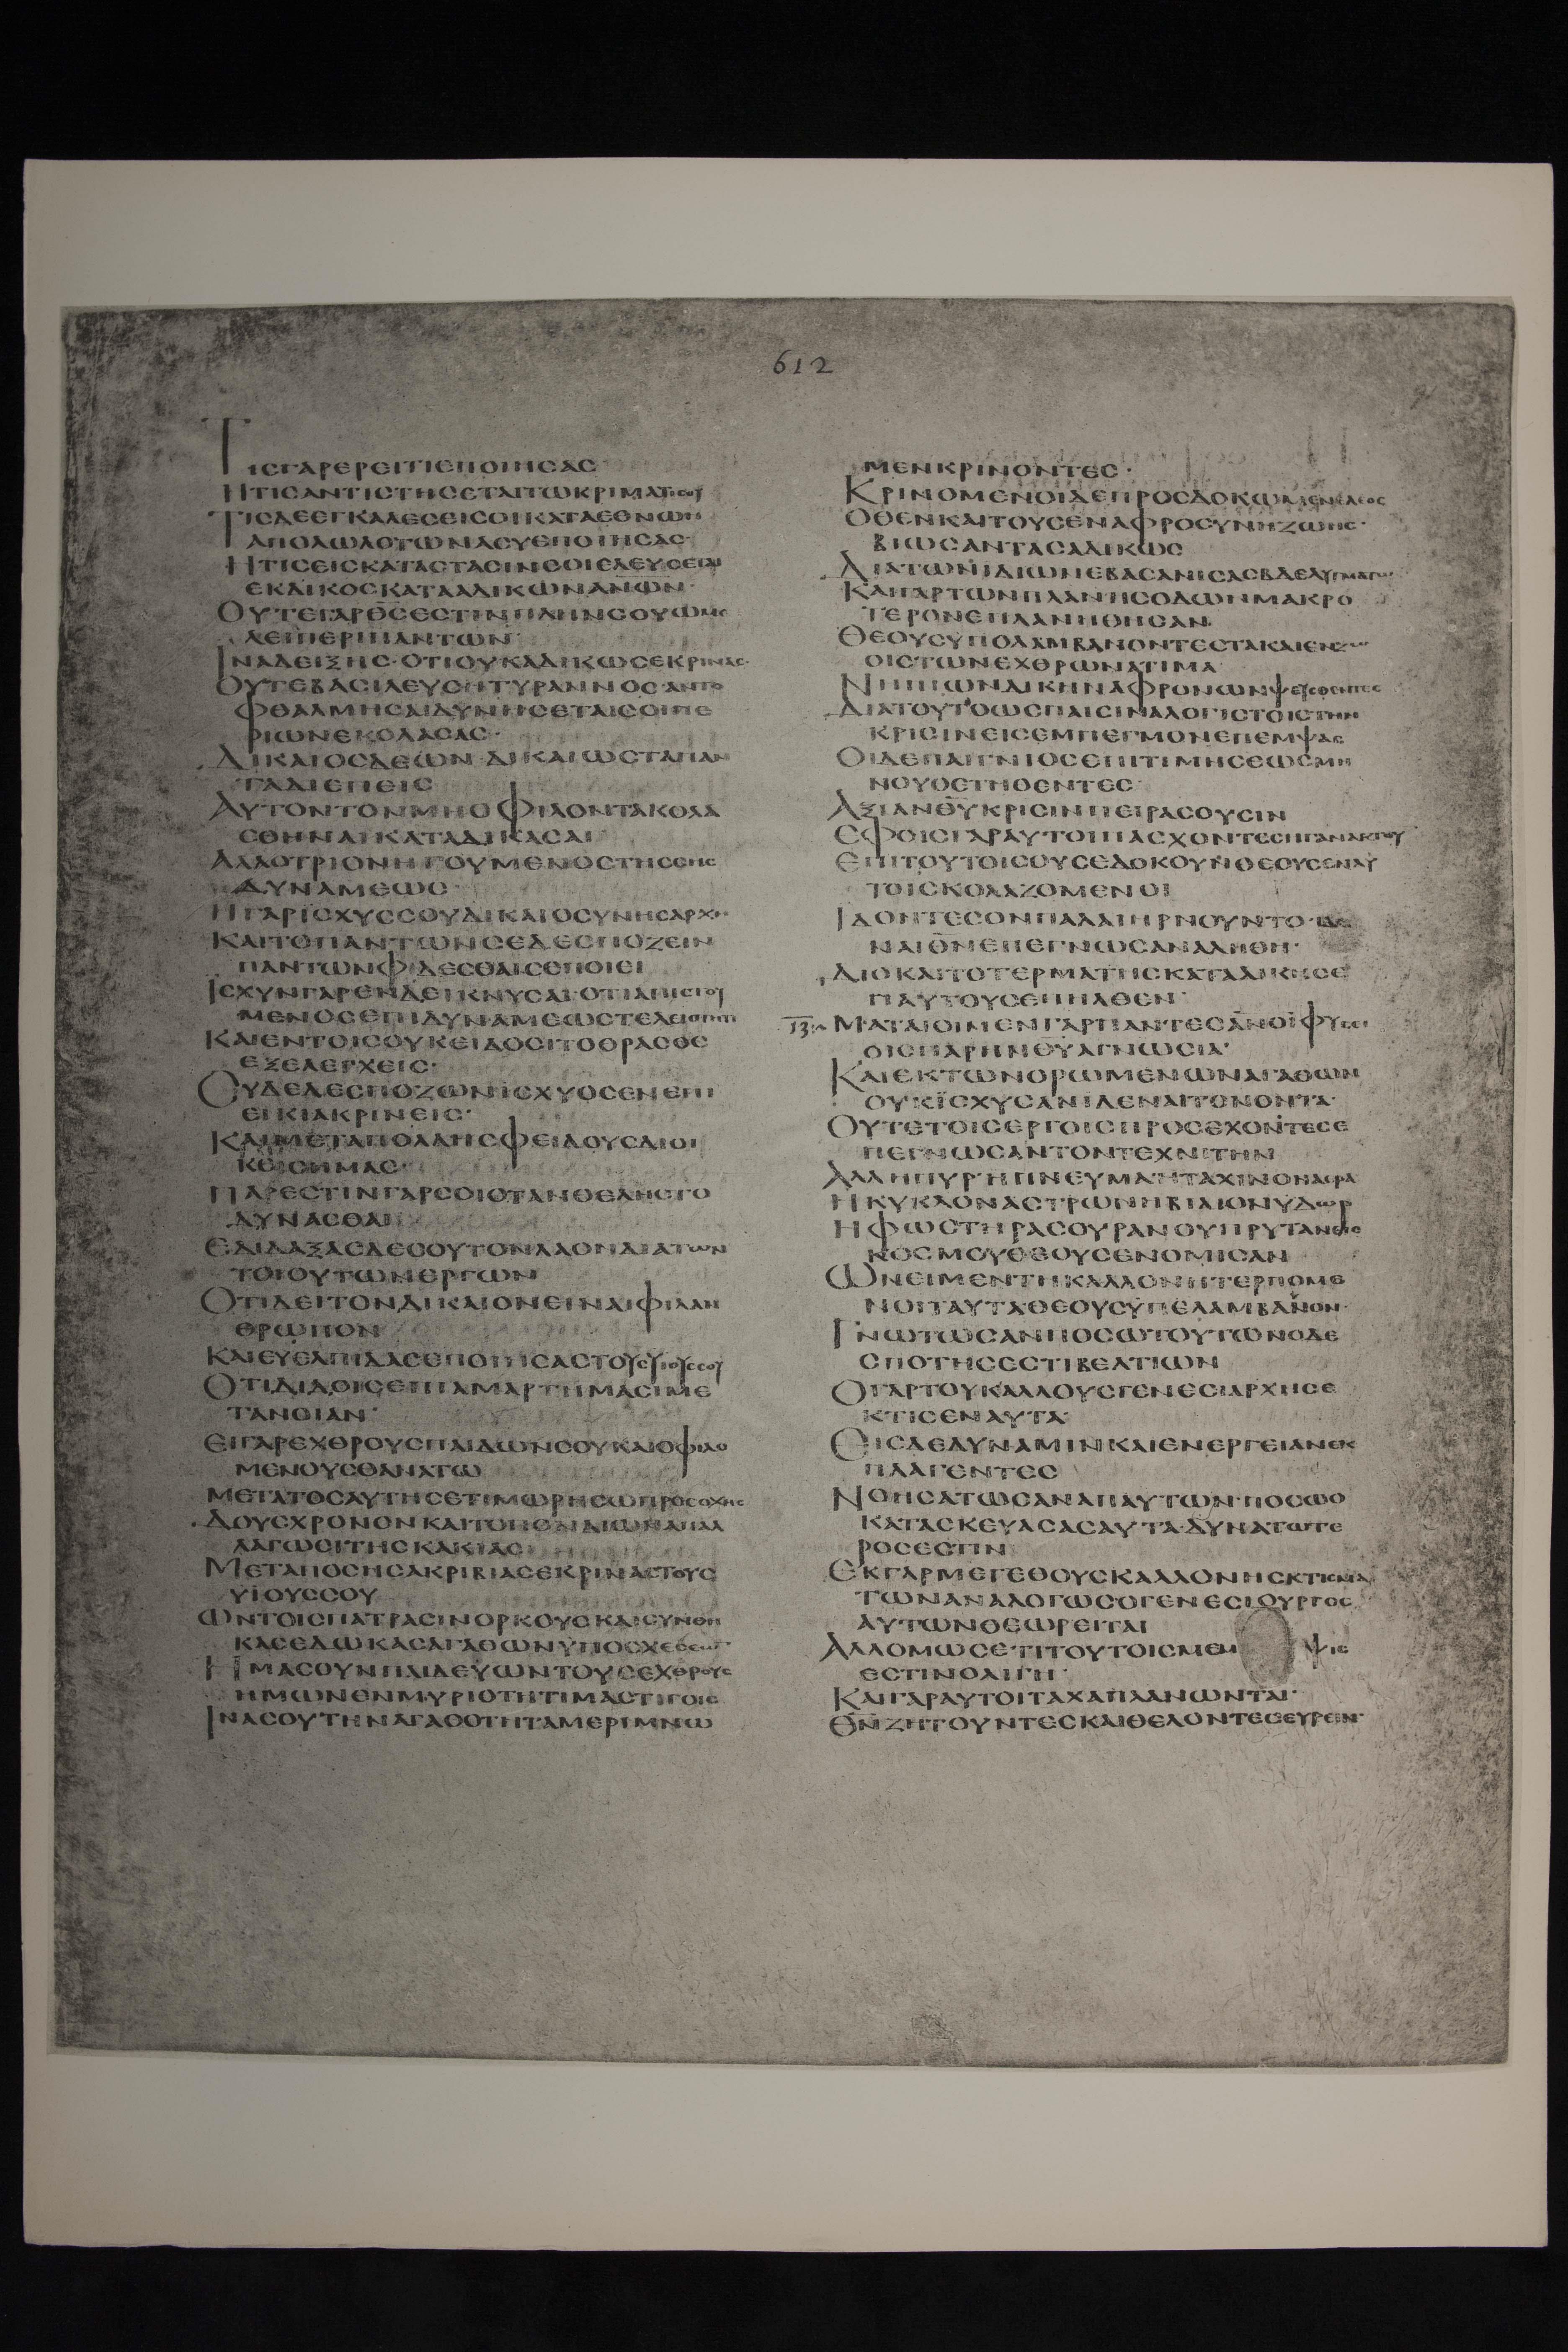 612
ΤΙCΓΑΡΕΡΕΙΤΙΕΠΟΙΗCΑC
ΗΤΙCΑΝΤΙCΤΗCΕΤΑΙΤΩΚΡΙΜΑΤΙCΟΥ
ΤΙCΔΕΕΓΚΑΛΕCΕΙCΟΙΚΑΤΑΕΘΝΩΝ
ΑΠΟΛΩΛΟΤΩΝΑCΥΕΠΟΙΗCΑC·
ΗΤΙCΕΙCΚΑΤΑCΤΑCΙΝCΟΙΕΛΕΥCΕΤΑΙ
ΕΚΔΙΚΟCΚΑΤΑΑΔΙΚΩΝΑΝΩΝ·
ΟΥΤΕΓΑΡΘCΕCΤΙΝΠΛΗΝCΟΥΩΜΕ
ΛΕΙΠΕΡΙΠΑΝΤΩΝ·
ΙΝΑΔΕΙΞΗC·ΟΤΙΟΥΚΑΔΙΚΩCΕΚΡΙΝΑC·
ΟΥΤΕΒΑCΙΛΕΥCΗΤΥΡΑΝΝΟCΑΝΤΟ
ΦΘΑΛΜΗCΑΙΔΥΝΗCΕΤΑΙCΟΙΠΕ
ΡΙΩΝΕΚΟΛΑCΑC·
ΔΙΚΑΙΟCΔΕΩΝ·ΔΙΚΑΙΩCΤΑΠΑΝ
ΤΑΔΙΕΠΕΙC
ΑΥΤΟΝΤΟΝΜΗΟΦΙΛΟΝΤΑΚΟΛΑ
CΘΗΝΑΙΚΑΤΑΔΙΚΑCΑΙ
ΑΛΛΟΤΡΙΟΝΗΓΟΥΜΕΝΟCΤΗCCΗC
ΔΥΝΑΜΕΩC·
ΗΓΑΡΙCΧΥCCΟΥΔΙΚΑΙΟCΥΝΗCΑΡΧΗ·
ΚΑΙΤΟΠΑΝΤΩΝCΕΔΕCΠΟΖΕΙΝ
ΠΑΝΤΩΝΦΙΔΕCΘΑΙCΕΠΟΙΕΙ
ΙCΧΥΝΓΑΡΕΝΔΕΙΚΝΥCΑΙ·ΟΤΙΑΠΙCΤΟΥ
ΜΕΝΟCΕΠΙΔΥΝΑΜΕΩCΤΕΛΕΙΟΤΗΤΙ
ΚΑΙΕΝΤΟΙCΟΥΚΕΙΔΟCΙΤΟΘΡΑCΟC
ΕΞΕΛΕΓΧΕΙC·
CΥΔΕΔΕCΠΟΖΩΝΙCΧΥΟCΕΝΕΠΙ
ΕΙΚΙΑΚΡΙΝΕΙC·
ΚΑΙΜΕΤΑΠΟΛΛΗCΦΕΙΔΟΥCΔΙΟΙ
ΚΕΙCΗΜΑC·
ΠΑΡΕCΤΙΝΓΑΡCΟΙΟΤΑΝΘΕΛΗCΤΟ
ΔΥΝΑCΘΑΙ
ΕΔΙΔΑΞΑCΔΕCΟΥΤΟΝΛΑΟΝΔΙΑΤΩΝ
ΤΟΙΟΥΤΩΝΕΡΓΩΝ
ΟΤΙΔΕΙΤΟΝΔΙΚΑΙΟΝΕΙΝΑΙΦΙΛΑΝ
ΘΡΩΠΟΝ
ΚΑΙΕΥΕΛΠΙΔΑCΕΠΟΙΗCΑCΤΟΥCΥΙΟΥCCΟΥ
ΟΤΙΔΙΔΟΙCΕΠΙΑΜΑΡΤΗΜΑCΙΜΕ
ΤΑΝΟΙΑΝ·
ΕΙΓΑΡΕΧΘΡΟΥCΠΑΙΔΩΝCΟΥΚΑΙΟΦΙΛΟ
ΜΕΝΟΥCΘΑΝΑΤΩ
ΜΕΤΑΤΟCΑΥΤΗCΕΤΙΜΩΡΗCΩΠΡΟCΟΧΗC
ΔΟΥCΧΡΟΝΟΝΚΑΙΤΟΠΟΝΔΙΩΝΑΠΑΛ
ΛΑΓΩCΙΤΗCΚΑΚΙΑC
ΜΕΤΑΠΟCΗCΑΚΡΙΒΙΑCΕΚΡΙΝΑCΤΟΥC
ΥΙΟΥCCΟΥ
ΩΝΤΟΙCΠΑΤΡΑCΙΝΟΡΚΟΥCΚΑΙCΥΝΘΗ
ΚΑCΕΔΩΚΑCΑΓΑΘΩΝΥΠΟCΧΕCΕΩΝ·
ΗΜΑCΟΥΝΠΑΙΔΕΥΩΝΤΟΥCΕΧΘΡΟΥC
ΗΜΩΝΕΝΜΥΡΙΟΤΗΤΙΜΑCΤΙΓΟΙC
ΙΝΑCΟΥΤΗΝΑΓΑΘΟΤΗΤΑΜΕΡΙΜΝΩ
ΜΕΝΚΡΙΝΟΝΤΕC·
ΚΡΙΝΟΜΕΝΟΙΔΕΠΡΟCΔΟΚΩΜΕΝΕΛΕΟC
ΟΘΕΝΚΑΙΤΟΥCΕΝΑΦΡΟCΥΝΗΖΩΗC·
ΒΙΩCΑΝΤΑCΑΔΙΚΩC
ΔΙΑΤΩΝΙΔΙΩΝΕΒΑCΑΝΙCΑCΒΔΕΛΥΓΜΑΤΩΝ·
ΚΑΙΓΑΡΤΩΝΠΛΑΝΗCΟΔΩΝΜΑΚΡΟ
ΤΕΡΟΝΕΠΛΑΝΗΘΗCΑΝ
ΘΕΟΥCΥΠΟΛΑΜΒΑΝΟΝΤΕCΤΑΚΑΙΕΝΖΩ
ΟΙCΤΩΝΕΧΘΡΩΝΑΤΙΜΑ
ΝΗΠΙΩΝΔΙΚΗΝΑΦΡΟΝΩΝΨΕΥCΘΕΝΤΕC
ΔΙΑΤΟΥΤΟΩCΠΑΙCΙΝΑΛΟΓΙCΤΟΙCΤΗΝ
ΚΡΙCΙΝΕΙCΕΜΠΕΓΜΟΝΕΠΕΜΨΑC
ΟΙΔΕΠΑΙΓΝΙΟCΕΠΙΤΙΜΗCΕΩCΜΗ
ΝΟΥΘΕΤΗΘΕΝΤΕC·
ΑΞΙΑΝΘΥΚΡΙCΙΝΠΕΙΡΑCΟΥCΙΝ
ΕΦΟΙCΓΑΡΑΥΤΟΙΠΑCΧΟΝΤΕCΗΓΑΝΑΚΤΟΥ
ΕΠΙΤΟΥΤΟΙCΟΥCΕΔΟΚΟΥΝΘΕΟΥCΕΝΑΥ
ΤΟΙCΚΟΛΑΖΟΜΕΝΟΙ
ΙΔΟΝΤΕCΟΝΠΑΛΑΙΗΡΝΟΥΝΤΟ
ΝΑΙΘΝΕΠΕΓΝΩCΑΝΑΛΗΘΗ·
ΔΙΟΚΑΙΤΟΤΕΡΜΑΤΗCΚΑΤΑΔΙΚΗCΕ
ΠΑΥΤΟΥCΕΠΗΛΘΕΝ·
13 ΜΑΤΑΙΟΙΜΕΝΓΑΡΠΑΝΤΕCΑΝΟΙΦΥCΕΙ
ΟΙCΠΑΡΗΝΘΥΑΓΝΩCΙΑ·
ΚΑΙΕΚΤΩΝΟΡΩΜΕΝΩΝΑΓΑΘΩΝ
ΟΥΚΙCΧΥCΑΝΙΔΕΝΑΙΤΟΝΟΝΤΑ·
ΟΥΤΕΤΟΙCΕΡΓΟΙCΠΡΟCΕΧΟΝΤΕCΕ
ΠΕΓΝΩCΑΝΤΟΝΤΕΧΝΙΤΗΝ
ΑΛΛΗΠΥΡ·ΗΠΝΕΥΜΑ·ΗΤΑΧΙΝΟΝΑΕΡΑ
ΗΚΥΚΛΟΝΑCΤΡΩΝΗΒΙΑΙΟΝΥΔΩΡ
ΗΦΩCΤΗΡΑCΟΥΡΑΝΟΥΠΡΥΤΑΝΕΙC
ΚΟCΜΟΥΘΕΟΥCΕΝΟΜΙCΑΝ
ΩΝΕΙΜΕΝΤΗΚΑΛΛΟΝΗΤΕΡΠΟΜΕ
ΝΟΙΤΑΥΤΑΘΕΟΥCΥΠΕΛΑΜΒΑΝΟΝ·
ΓΝΩΤΩCΑΝΠΟCΩΤΟΥΤΩΝΟΔΕ
CΠΟΤΗCΕCΤΙΒΕΛΤΙΩΝ
ΟΓΑΡΤΟΥΚΑΛΛΟΥCΓΕΝΕCΙΑΡΧΗCΕ
ΚΤΙCΕΝΑΥΤΑ
ΕΙCΔΕΔΥΝΑΜΙΝΚΑΙΕΝΕΡΓΕΙΑΝΕΚ
ΠΛΑΓΕΝΤΕC
ΝΟΗCΑΤΩCΑΝΑΠΑΥΤΩΝ·ΠΟCΩΟ
ΚΑΤΑCΚΕΥΑCΑCΑΥΤΑ·ΔΥΝΑΤΩΤΕ
ΡΟCΕCΤΙΝ
ΕΚΓΑΡΜΕΓΕΘΟΥCΚΑΛΛΟΝΗCΚΤΙCΜΑ
ΤΩΝΑΝΑΛΟΓΩCΟΓΕΝΕCΙΟΥΡΓΟC
ΑΥΤΩΝΘΕΩΡΕΙΤΑΙ
ΑΛΛΟΜΩCΕ·ΤΙΤΟΥΤΟΙCΜΕΜ ΨΙC
ΕCΤΙΝΟΛΙΓΗ·
ΚΑΙΓΑΡΑΥΤΟΙΤΑΧΑΠΛΑΝΩΝΤΑΙ·
ΘΝΖΗΤΟΥΝΤΕCΚΑΙΘΕΛΟΝΤΕCΕΥΡΕΙΝ·